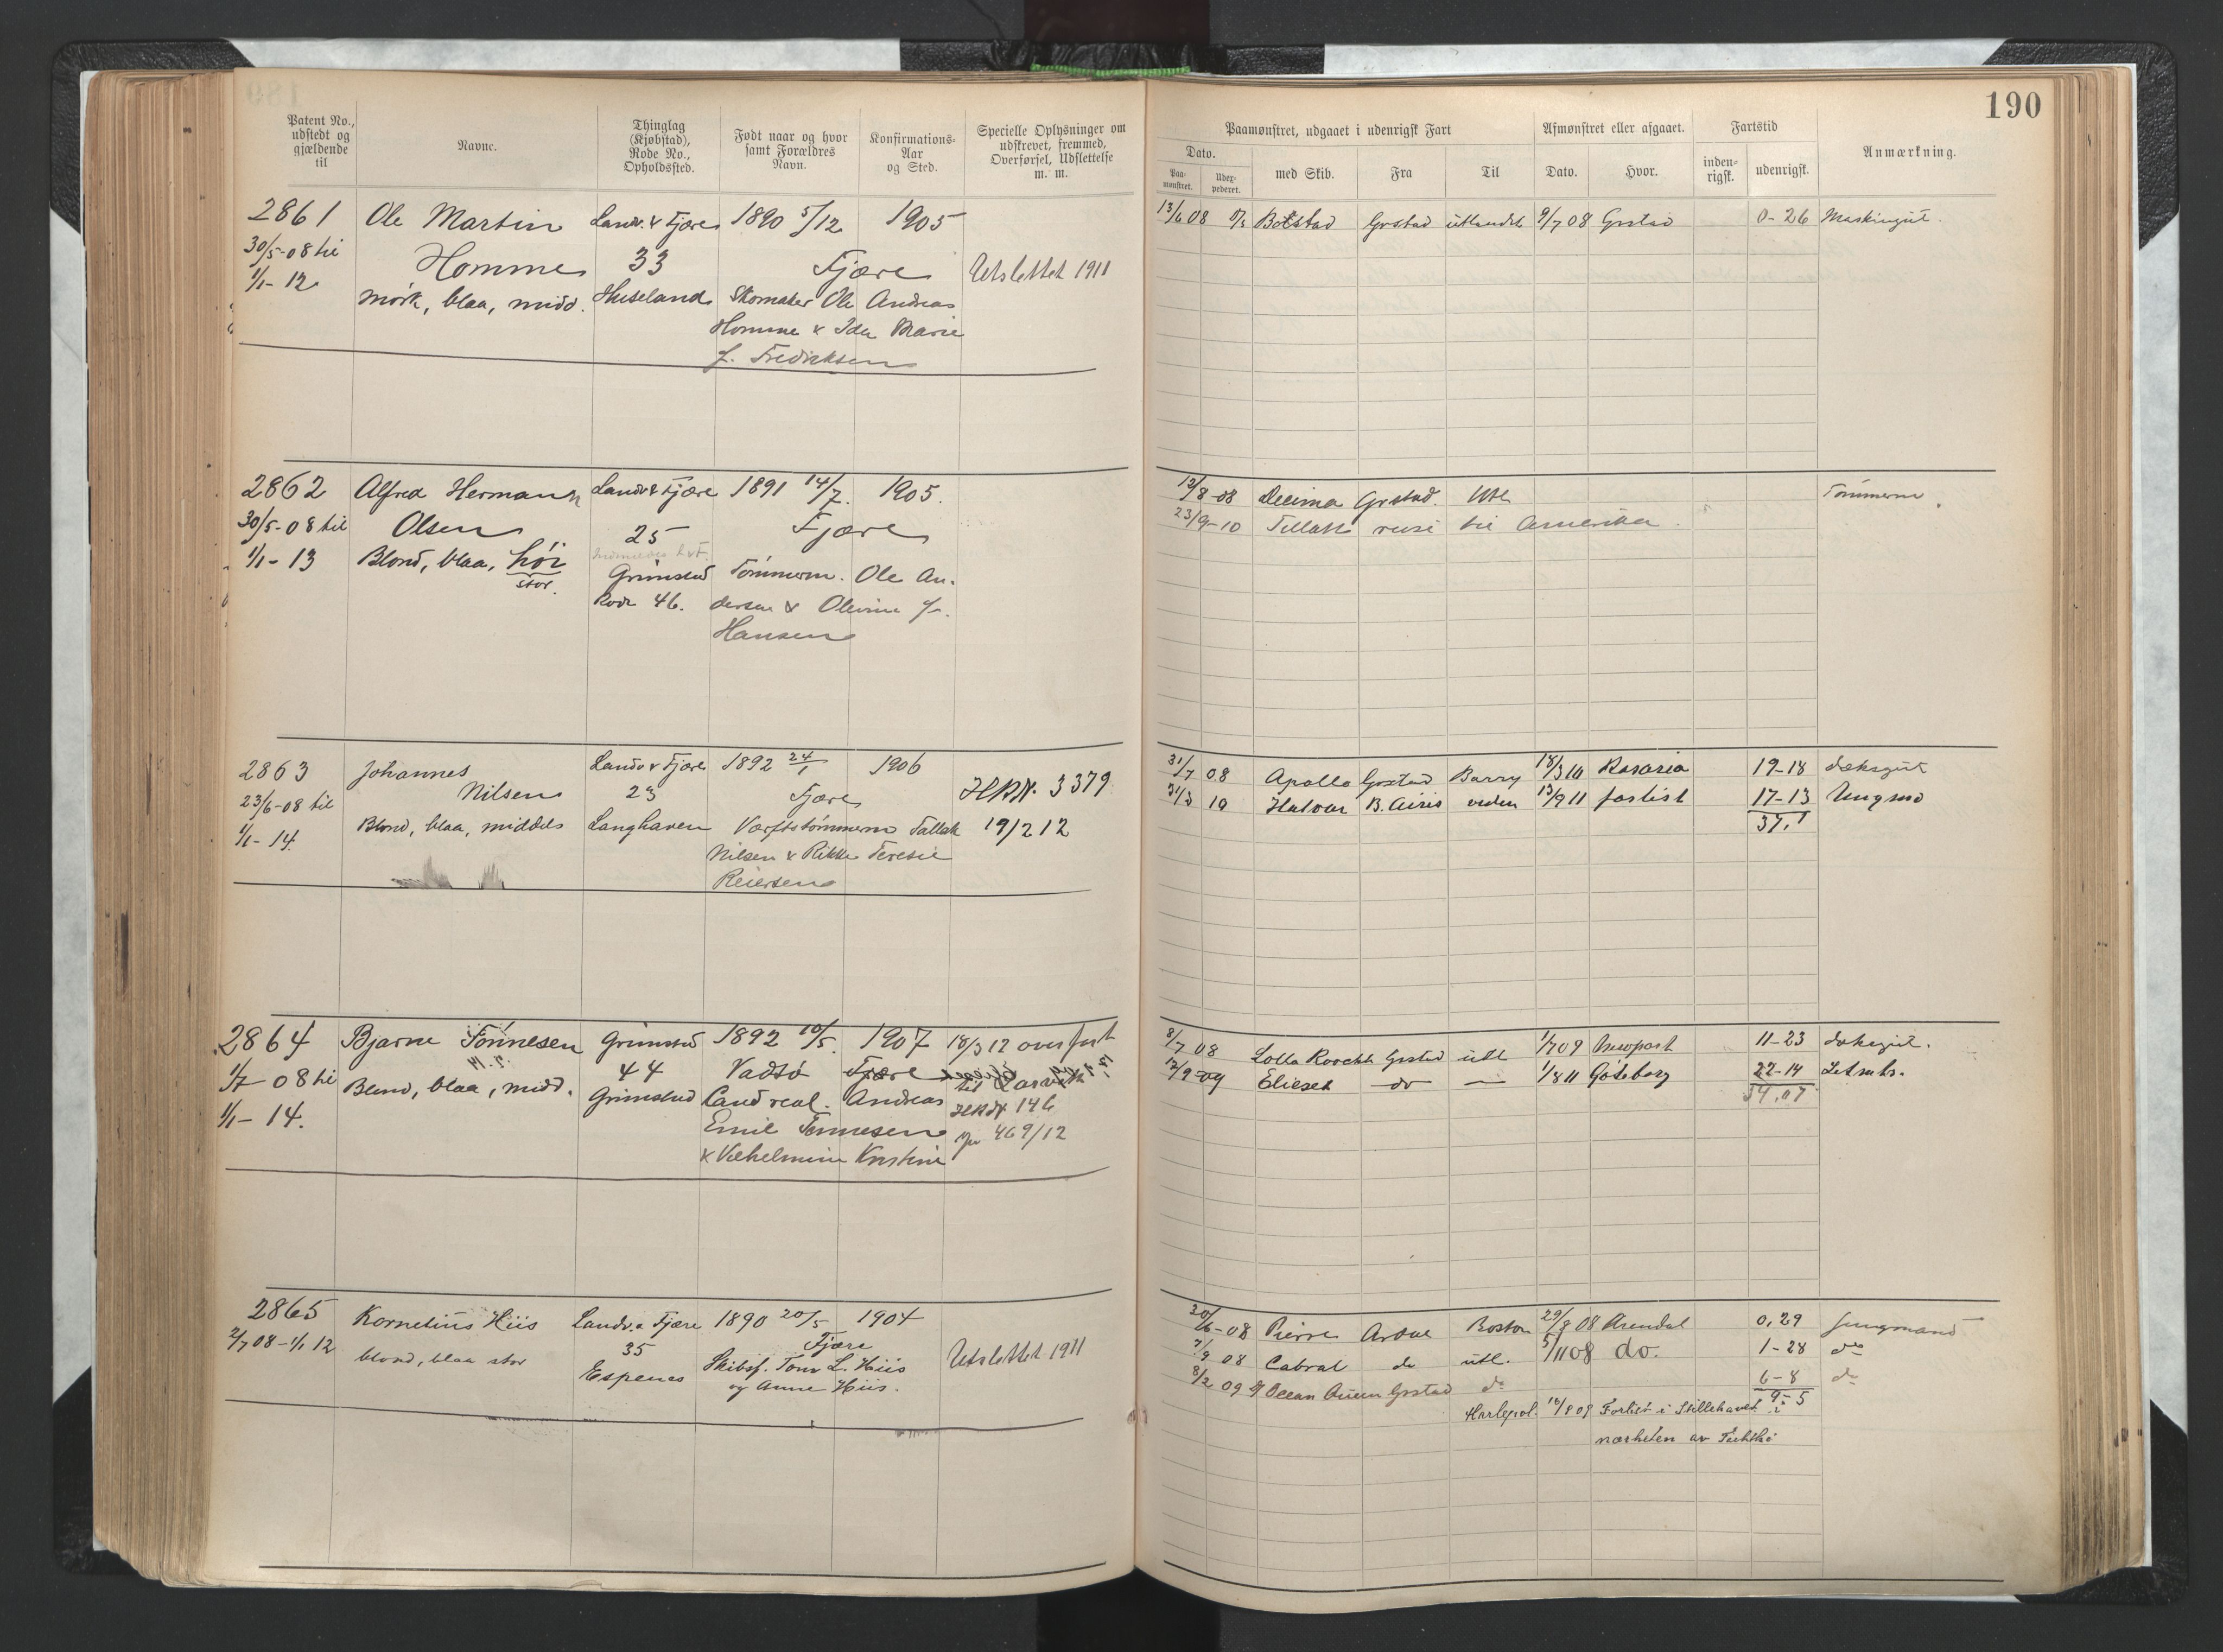 190
Patent No., udstedt og gjældende til
Navne.
Thinglag (Kjøbstad), Rode No., Opholdssted.
Født naar og hvor samt Forældres Navn.
Konfirmations-Aar og Sted.
Specielle Oplysninger om udskrevet, fremmed, Overførsel, Udslettelse m. m.
Paamønstret, udgaaet i udenrigsk Fart
Afmønstret eller afgaaet.
Fartstid
Anmærkning.
Dato.
Paa-mønstret.
Udex-pederet.
med Skib.
Fra
Til
Dato.
Hvor.
inden-rigsk.
udenrigsk.
2861 Ole Martin Landv. & Fjære 1890 5/12 1905
30/5-08 til Homme 33 Fjære Utslettet 1911
1/1-12 mørk, blaa, midd. Huseland Skomaker Ole Andreas
Homme & Ida Marie
f. Fredriksen
13/6 08 Botstad Grstad utlandet 9/7 08 Grstad 0-26 Maskingut.
2862 Alfred Hermann Landv & Fjære 1891 14/7. 1905.
30/5-08 til Olsen 25 Fjære
1/1-13 Blond, blaa, høi
stor.
Grimstad Tømmerm. Ole An-
Rode 46. dersen & Olevine f.
Hansen
13/8-08 Decima Grstad. Utl Tømmerm
23/9-10 Tillatt reise til Amerika.
2863 Johannes Landv & Fjære 1892 24/1 1906
23/6-08 til Nilsen 23 Fjære HRN. 3379
1/1-14. Blond, blaa, middels Langhaven Værftstømmerm Tallak 19/2 12
Nilsen & Rikke Teresie
Reiersen
31/7 08 Apollo Grstad Barry 18/3 10 Rosario 19-18 Dæksgut
31/3 10 Halvar B. Aires veden 13/9 11 forlist 17-13 Ungmd
37,1
2864 Bjarne Tønnesen Grimstad 1892 10/5. 1907 18/3 12 overført
1/7-08 til 44 Vadsø Fjære til Larvik
Blond, blaa, midd. Grimstad Cand real. Andreas HRN 146
1/1-14. Emil Tønnesen 469/12
& Vilhelmine Kristine
8/7 08 Lotte Grstad utl 1/7 09 Newport 11-23 Dæksgut.
12/9-09 Elieser do — 1/8 11 Göteborg 22-14 Letmtr.
34,07
2865 Kornelius Hiis Landv. & Fjære 1890 20/5 1904
2/7 08-1/1 12 35 Fjære Utslettet 1911
blond, blaa stor Espenes Skibsf. Tom L. Hiis
og Anne Hiis.
20/6-08 Pierre Ardal Boston 29/8 08 Arendal 0,29 Jungmand
7/9 08 Cabral do utl. 5/11 08 do. 1-28 do
8/2 09 Ocean Queen Grstad do 6-8 do
9-5
Hartlepol. 18/8 09 Forlist i Stillehavet i
nærheten av